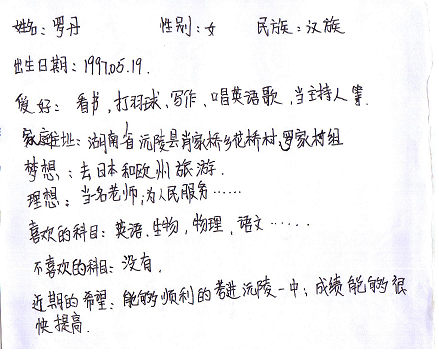 姓名：罗丹 性别：女 民族：汉族
出生日期：1997.05.19.
爱好：看书，打羽球、写作、唱英语歌，当主持人等.
家庭住址：湖南省沅陵县肖家桥乡花桥村罗家村组
梦想：去日本和欧州旅游.
理想：当名老师，为人民服务……
喜欢的科目：英语、生物，物理、语文……
不喜欢的科目：没有.
近期的希望：能够顺利的考进沅陵一中；成绩能够很
快提高.